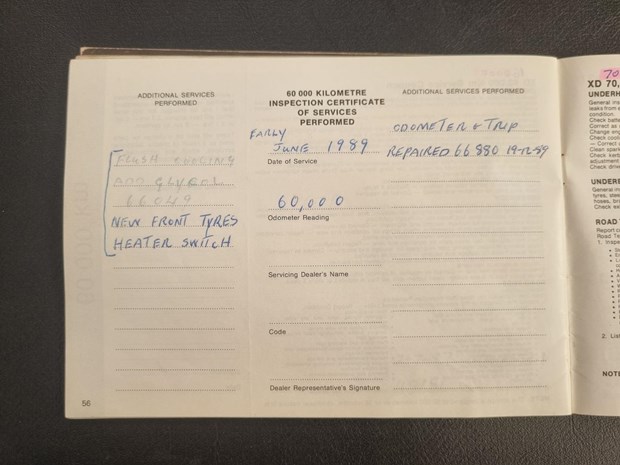 ADDITIONAL SERVICES
PERFORMED
FLUSH COOLING
ADD GLYCOL
66049
NEW FRONT TYRES
HEATER SWITCH
56
60 000 KILOMETRE
INSPECTION CERTIFICATE
OF SERVICES
PERFORMED
EARLY
JUNE 1989
Date of Service
60,000
Odometer Reading
Servicing Dealer's Name
Code
Dealer Representative's Signature
ADDITIONAL SERVICES PERFORMED
ODOMETER & TRIP
REPAIRED 66880 19-12-89
70
XD 70,
UNDERH
General ins
leaks from e
condition.
Check batte
Correct as
Change eng
Check cooli
— Correct
Clean spark
Check kerb
adjustment
Check drive
UNDERB
General in
tyres, stee
hoses, br
Check ex
ROAD T
Report c
Road Te
1. Inspe
2. List
NOTE